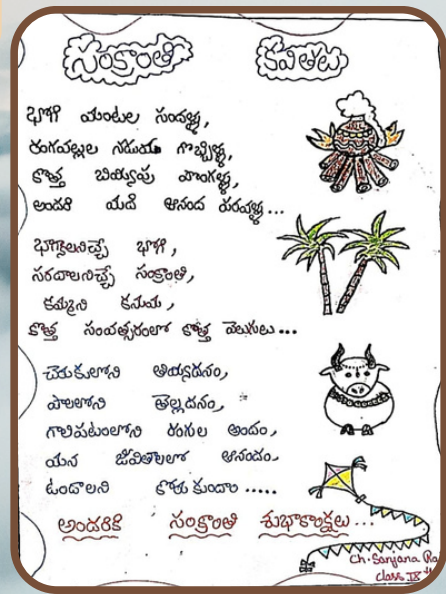 సంక్రాంతి కవితలు
భోగి మంటల సందళ్ళు,
రంగవల్లుల నడుమ గొబ్బిళ్ళు,
కొత్త బియ్యపు పొంగళ్ళు,
అందరి మది ఆనంద పరవళ్ళు...
భాగ్యాలనిచ్చే భోగి,
సరదాలనిచ్చే సంక్రాంతి,
కమ్మని కనుమ,
కొత్త సంవత్సరంలో కొత్త వెలుగులు...
చెరుకులోని తియ్యదనం,
పాలలోని తెల్లదనం,
గాలిపటంలోని రంగుల అందం,
మన జీవితాలలో ఆనందం
ఉండాలని కోరుకుందాం.....
అందరికి సంక్రాంతి శుభాకాంక్షలు...
Ch. Sanjana
Class IX